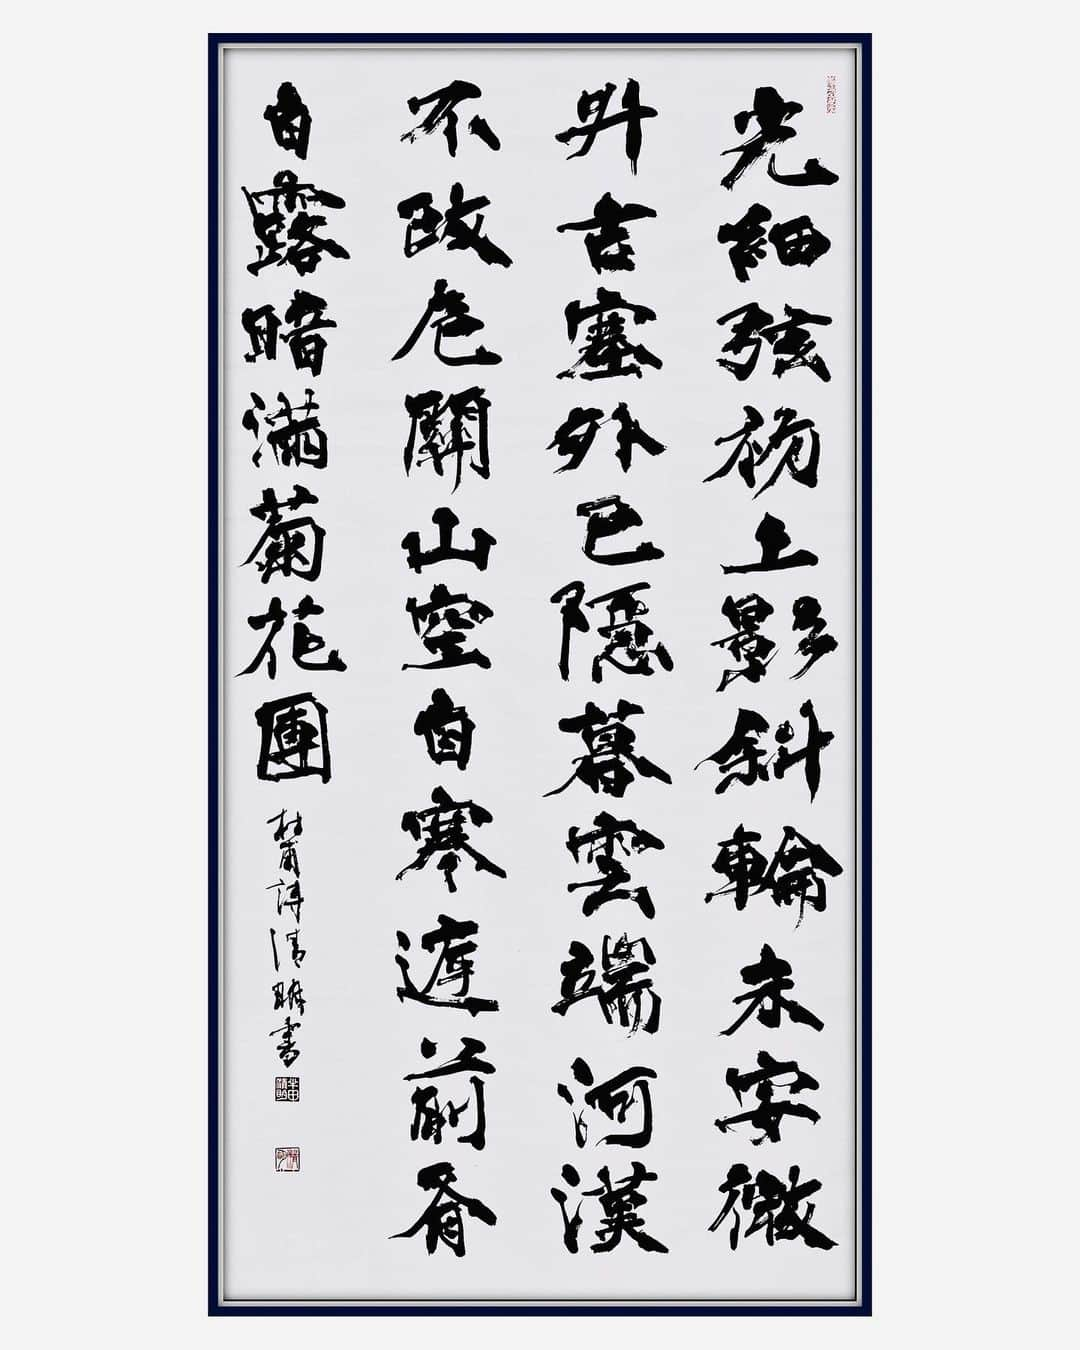 光細弦初上影斜輪未安微
升古塞外已隱暮雲端河漢
不改色關山空自寒庭前有
白露暗滿菊花團
杜甫詩清書